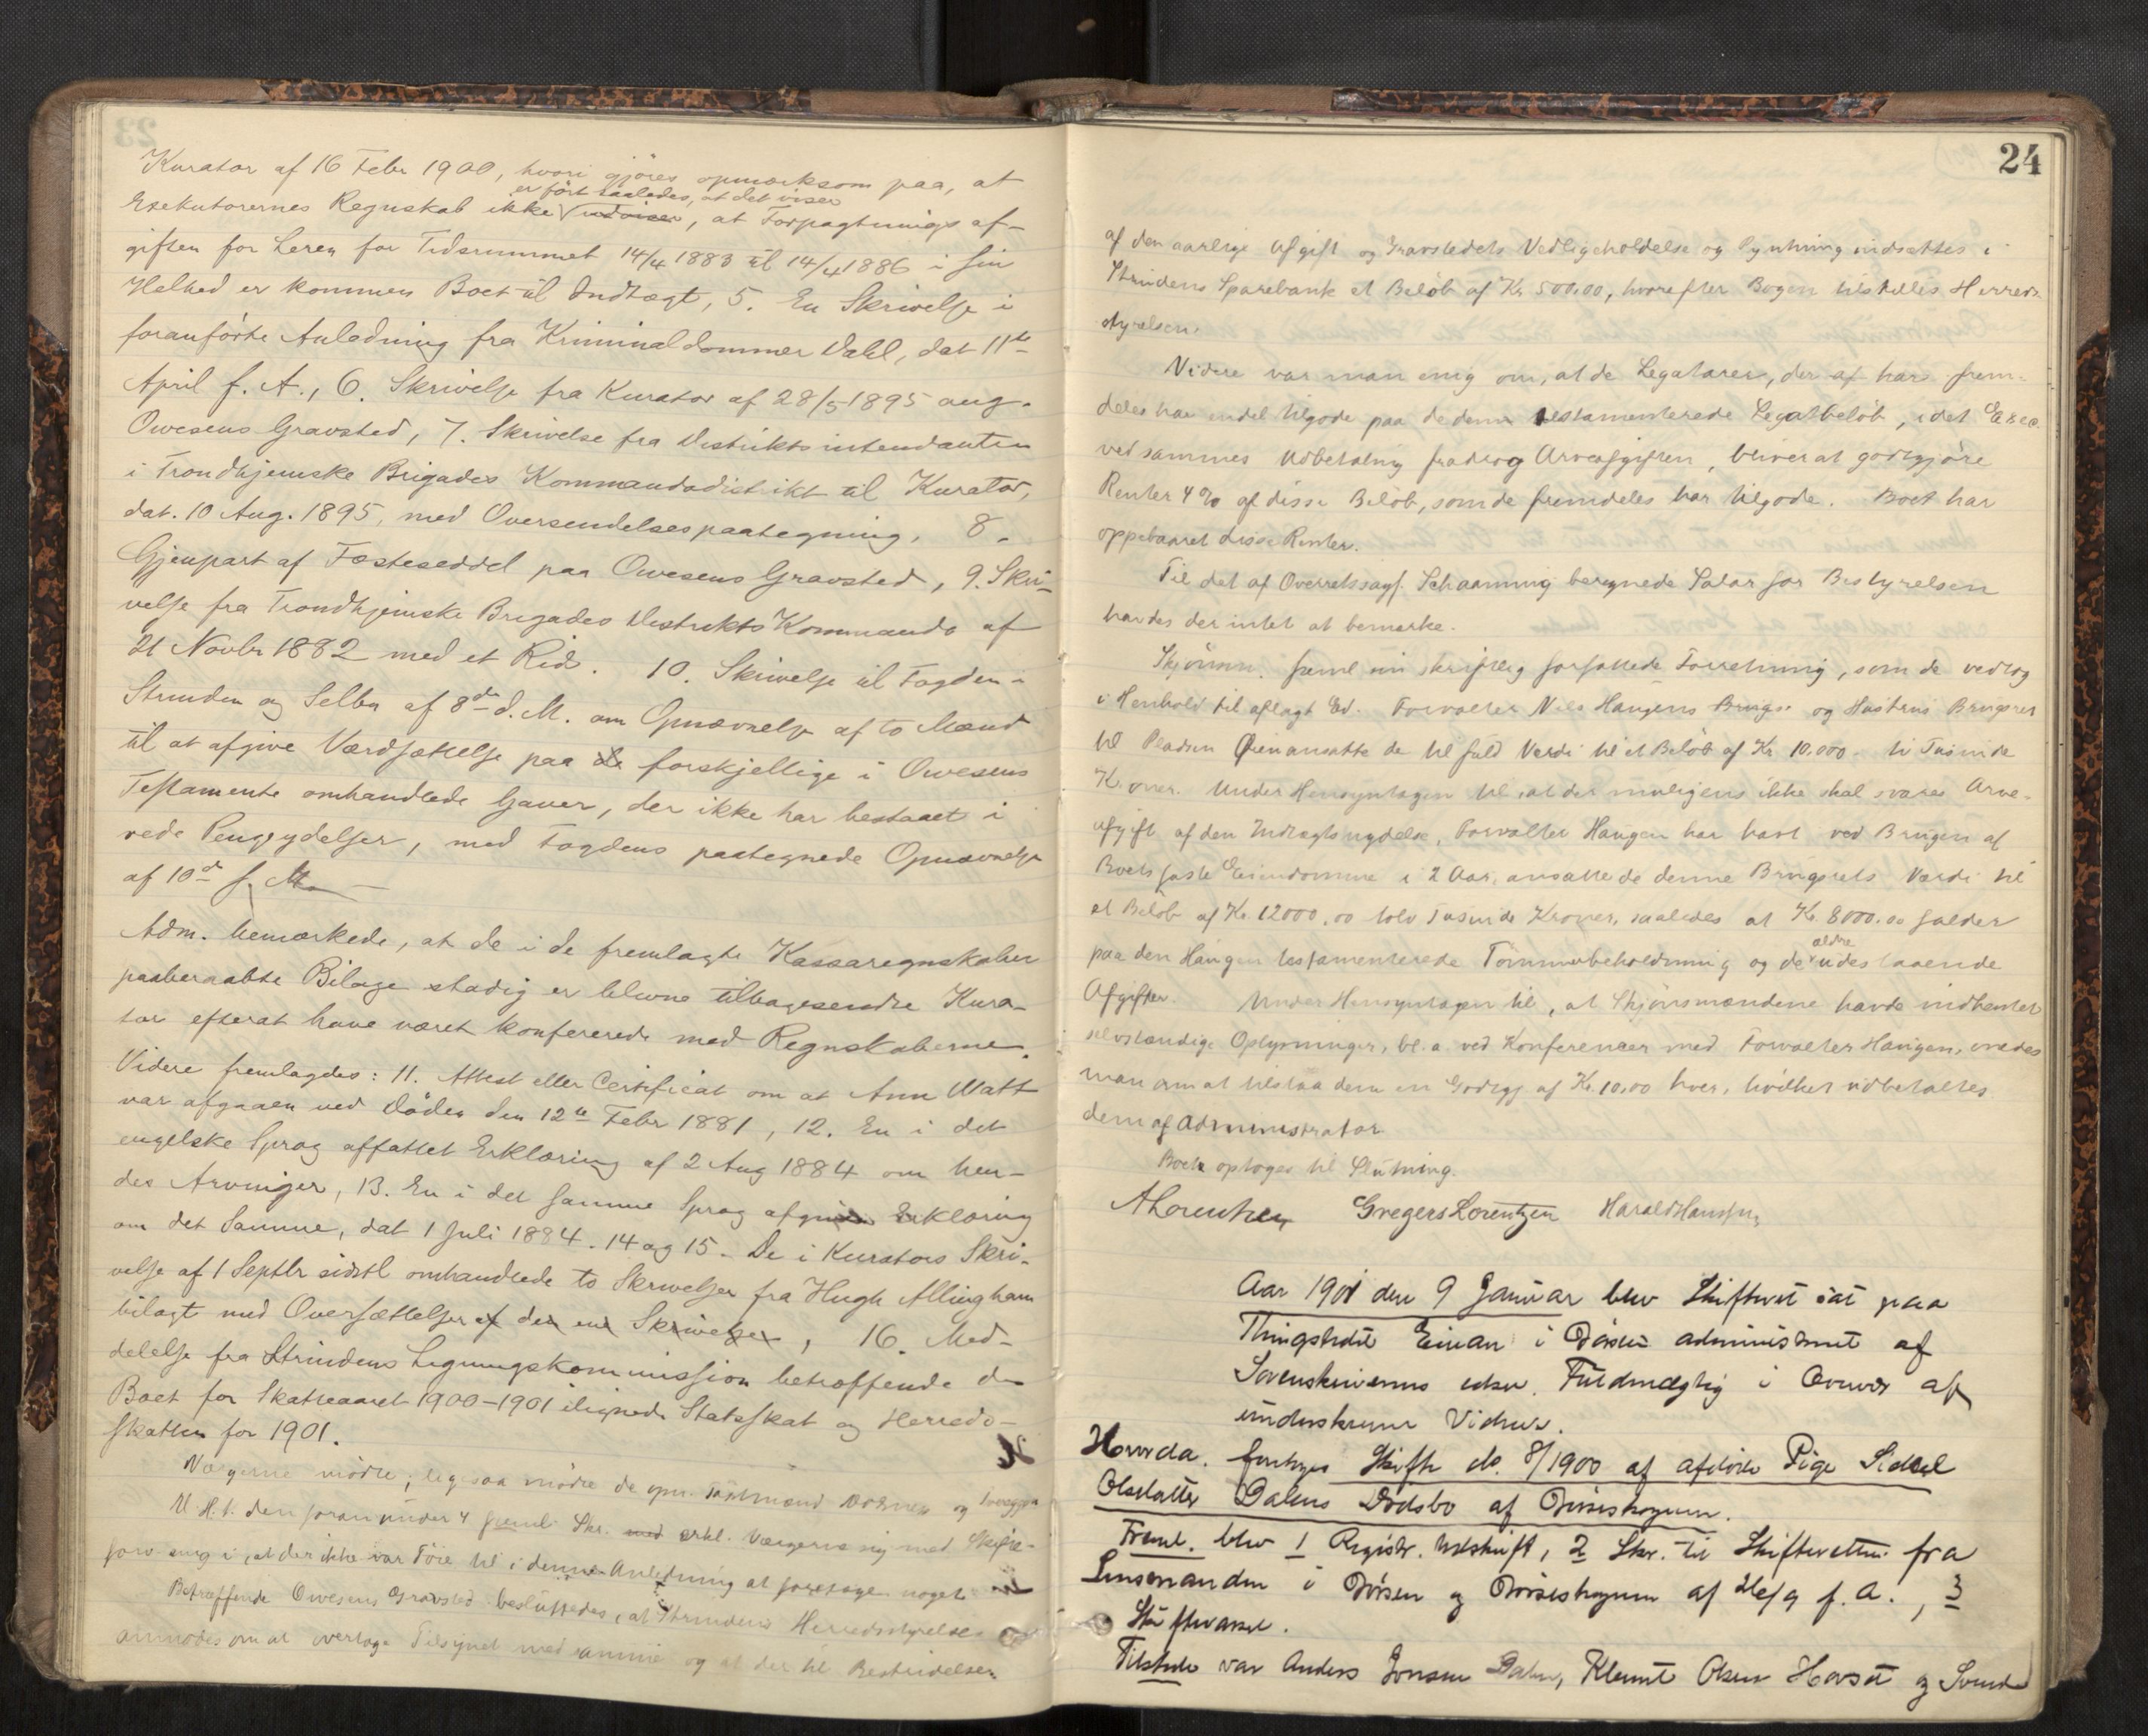 Kurator af 16 Febr 1900, hvori gjöres opmærksom paa, at
er fört saaledes, at det viser
Exekutorernes Regnskab ikke udviser, at Forpagtningsaf-
giften for Leren for Tidsrummet 14/4 1883 til 14/4 1886 i sin
Helhed er kommen Boet til Indtægt, 5. En Skrivelse i
foranförte Anledning fra Kriminaldommer Dahl, dat 11te
April f. A., 6. Skrivelse fra Kurator af 28/5 1895 ang.
Owesens Gravsted, 7. Skrivelse fra Distriktsintendanten
i Trondhjemske Brigades Kommandodistrikt til Kurator,
dat. 10 Aug. 1895, med Oversendelsespaategning, 8.
Gjenpart af Fæsteseddel paa Owesens Gravsted, 9. Skri-
velse fra Trondhjemske Brigades Distrikts Kommando af
21 Novbr 1882 med et Rids. 10. Skrivelse til Fogden i
Strinden og Selbu af 8de d. M. om Opnævnelse af to Mænd
til at afgive Værdsættelse paa de forskjellige i Owesens
Testamente omhandlede Gaver, der ikke har bestaaet i
rede Pengeydelser, med Fogdens paategnede Opnævnelse
af 10de s. M.
Adm. bemærkede, at de i de fremlagte Kassaregnskaber
paaberaabte Bilage stadig er blevne tilbagesendte Kura-
tor efterat have været konfererede med Regnskaberne.
Videre fremlagdes: 11. Attest eller Certificat om at Ann Watt
var afgaaen ved Döden den 12te Febr 1881, 12. En i det
engelske Sprog affattet Erklæring af 2 Aug 1884 om hen-
des Arvinger, 13. En i det samme Sprog afgiven Erklæring
om det Samme, dat 1 Juli 1884. 14 og 15. De i Kurators Skri-
velse af 1 Septbr sidstl omhandlede to Skrivelser fra Hugh Allingham
bilagt med Oversættelser af den ene Skrivelse, 16. Med-
delelse fra Strindens Ligningskommission betræffende de
Boet for Skatteaaret 1900-1901 ilignede Statsskat og Herreds-
skatten for 1901.
Værgerne mödte; ligesaa mödte de opn. Skjönsmænd og
U. H. t. den foran under 4 freml. Skr. med erkl. Værgerne sig med Skifte-
forv enig i, at der ikke var Föie til i denne Anledning at foretage noget
Betræffende Owesens Gravsted besluttedes, at Strindens Herredsstyrelse
anmodes om at overtage Tilsynet med samme og at der til Bestridelsen
24
af den aarlige Afgift og Gravstedets Vedligeholdelse og Pyntning indsættes i
Strindens Sparebank et Belöb af Kr 500,00, hvorefter Bogen tilstilles Herreds-
styrelsen.
Videre var man enig om, at de Legatarer, der af har frem-
deles har endel tilgode paa de dem testamenterede Legatbelöb, idet Exec.
ved sammes Udbetaling fradrog Arveafgiften, bliver at godtgjöre
Renter 4 % af disse Belöb, som de fremdeles har tilgode. Boet har
oppebaaret disse Renter.
Til det af Overretssagf. Schaanning beregnede Salær for Bestyrelsen
havdes der intet at bemerke.
Skjönsm. freml sin skriftlig forfattede Forretning, som de vedtog
i Henhold til aflagt Ed. Forvalter Nils Haugens Brugs- og Hustrus Brugsret
til Pladsen Öien ansatte de til fuld Værdi til et Belöb af Kr 10.000 ti Tusinde
Kroner. Under Hensyntagen til at der muligens ikke skal svares Arve-
afgift af den Indtægtsnydelse, Forvalter Haugen har havt ved Brugen af
Boets faste Eiendomme i 2 Aar, ansatte de denne Brugsrets Værdi til
et Belöb af Kr. 12000,00 tolv Tusinde Kroner, saaledes at Kr. 8000,00 falder
ældre
paa den Haugen testamenterede Tömmerbeholdning og de udestaaende
Afgifter. Under Hensyntagen til, at Skjönsmændene havde indhentet
selvstændige Oplysninger, bl. a. ved Konferencer med Forvalter Haugen, enedes
man om at tilstaa dem en Godtgj af Kr. 10,00 hver, hvilket udbetaltes
dem af Administrator.
Boet optoges til Slutning.
A Lorentzen Gregers Lorentzen Harald Hanssen
Aar 1901 den 9 Januar blev Skifteret sat paa
Thingstedet Einan i Börsen administreret af
Sorenskriverens edsv. Fuldmægtig i Overvær af
underskrevne Vidner.
Hvorda. foretoges Skifte No. 8/1900 af afdöde Pige Sidsel
Olsdatter Dalens Dödsbo af Börseskognen.
Freml. blev 1 Registr. Udskrift, 2 Skr. til Skifteretten fra
Lensmanden i Börsen og Börseskognen af 26/9 f. A., 3
Skiftevarsel.
Tilstede var Anders Jonsen Dalen, Klemet Olsen Hovset og Svend